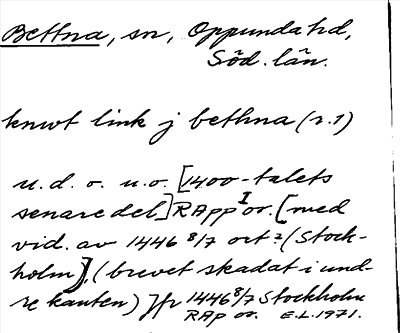 Bettna, sn, Oppunda hd,
Söd. län.
knwt link j bethna (r.1)
u.d. o. u.o. [1400-talets
senare del] RApp I or. [med
vid. av 1446 8/7 ort? (Stock-
holm)], (brevet skadat i und-
re kanten)] fr 1446 8/7 Stockholm
RAp or. E.L. 1971.